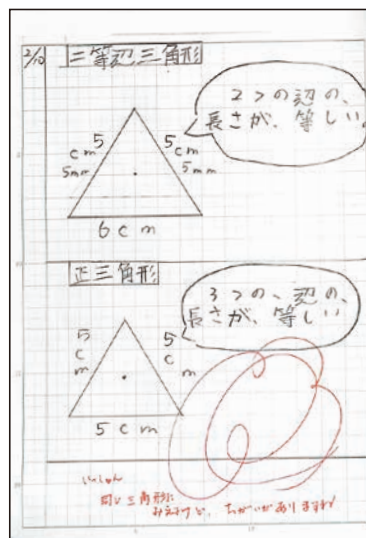 2/10
二等辺三角形
2つの辺の、
長さが、等しい。
5cm5mm
5cm5mm
6cm
正三角形
3つの、辺の、
長さが、等しい
5cm
5cm
5cm
同じ三角形に
みえるけど、ちがいがありますね